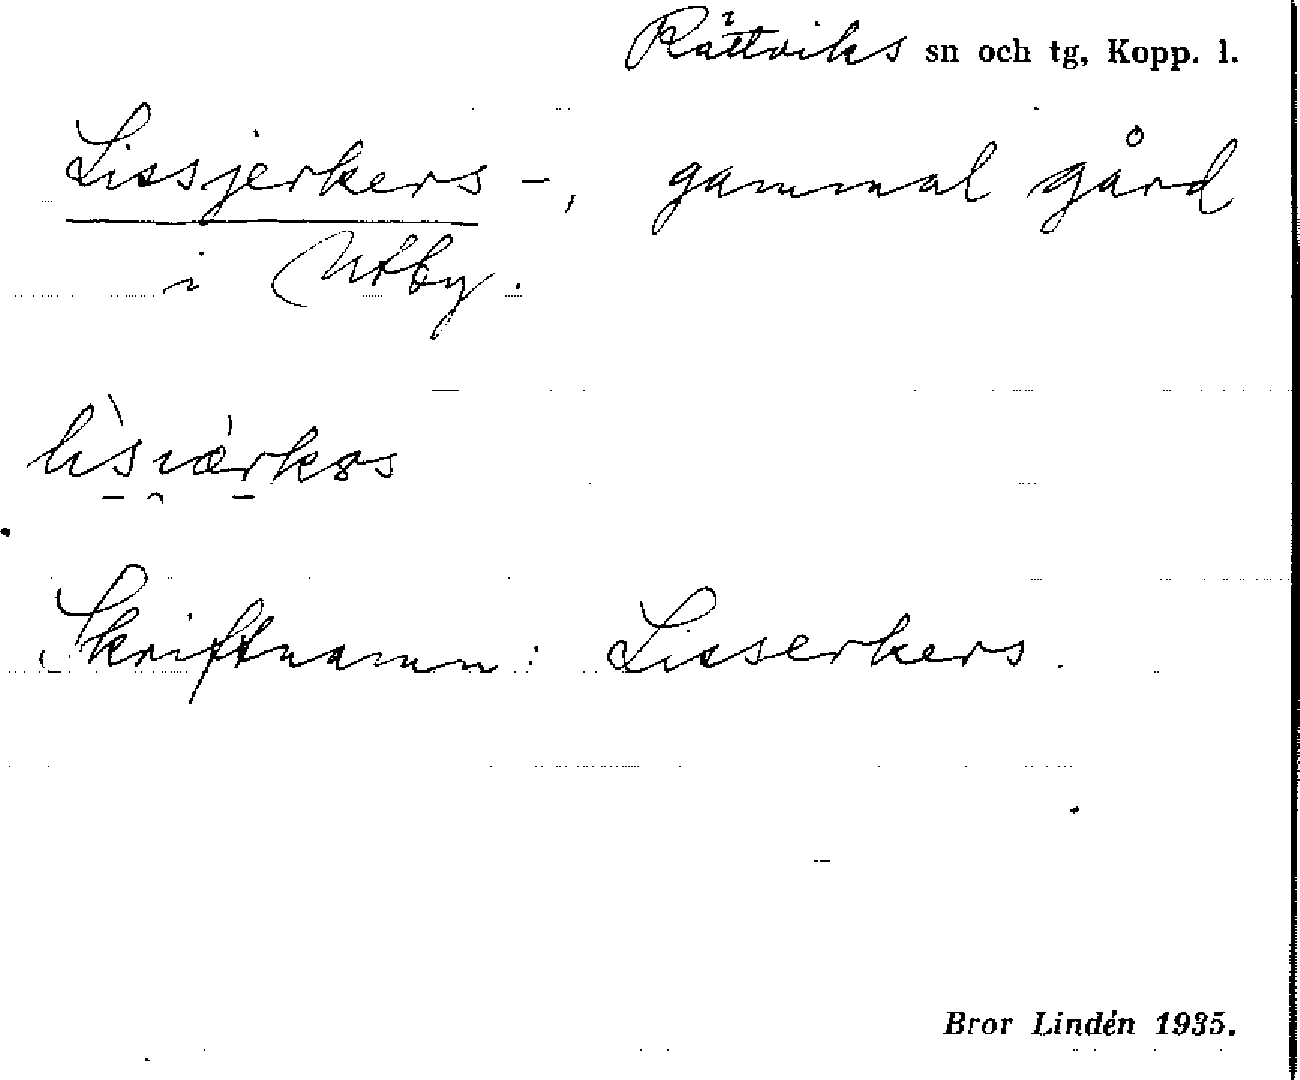 Rättviks sn och tg, Kopp. l.
Lissjerkers-, gammal gård
i Utby.
Skriftnamn: Lisserkers.
Bror Lindén 1935.